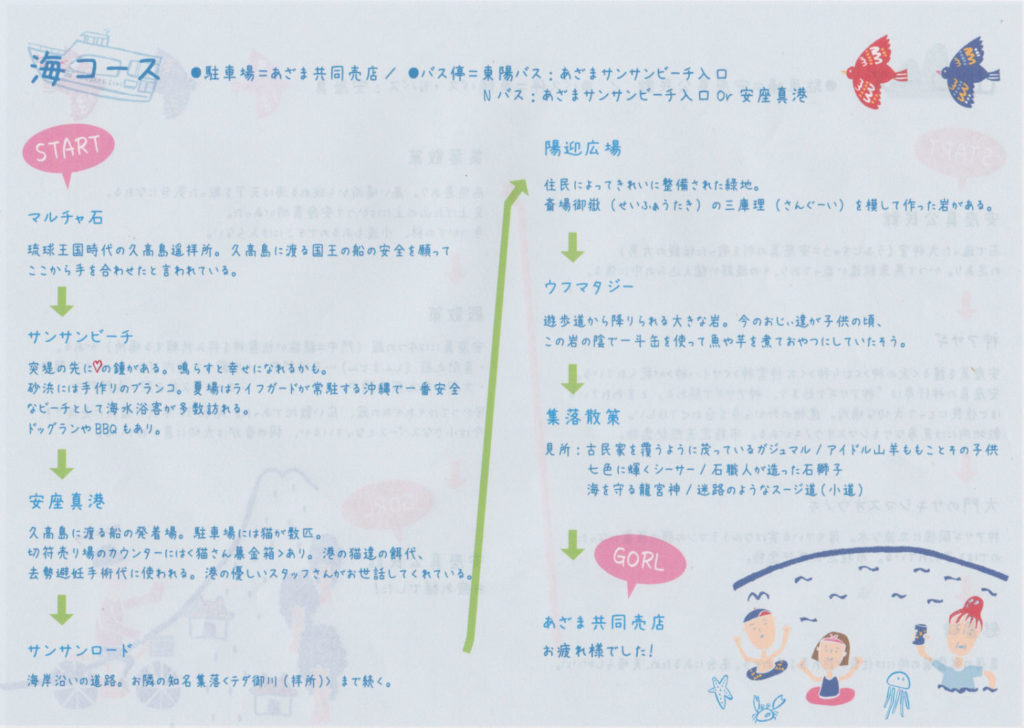 海コース
●駐車場=あざま共同売店/ ●バス停=東陽バス:あざまサンサンビーチ入口
Nバス:あざまサンサンビーチ入口 Or 安座真港
START
マルチャ石
琉球王国時代の久高島遥拝所。久高島に渡る国王の船の安全を願って
ここから手を合わせたと言われている。
サンサンビーチ
突堤の先に♡の鐘がある。鳴らすと幸せになれるかも。
砂浜には手作りのブランコ。夏場はライフガードが常駐する沖縄で一番安全
なビーチとして海水浴客が多数訪れる。
ドッグランやBBQもあり。
安座真港
久高島に渡る船の発着場。駐車場には猫が数匹。
切符売り場のカウンターには<猫さん募金箱>あり。港の猫達の餌代、
去勢避妊手術代に使われる。港の優しいスタッフさんがお世話してくれている。
サンサンロード
海岸沿いの道路。お隣の知名集落<テダ御川(拝所)>まで続く。
陽迎広場
住民によってきれいに整備された緑地。
斎場御嶽(せいふぁうたき)の三庫理(さんぐーい)を模して作った岩がある。
ウフマタジー
遊歩道から降りられる大きな岩。今のおじぃ達が子供の頃、
この岩の陰で一斗缶を使って魚や芋を煮ておやつにしていたそう。
集落散策
見所:古民家を覆うように茂っているガジュマル/アイドル山羊ももことその子供
七色に輝くシーサー/石職人が造った石獅子
海を守る龍宮神/迷路のようなスージ道(小道)
GORL
あざま共同売店
お疲れ様でした!